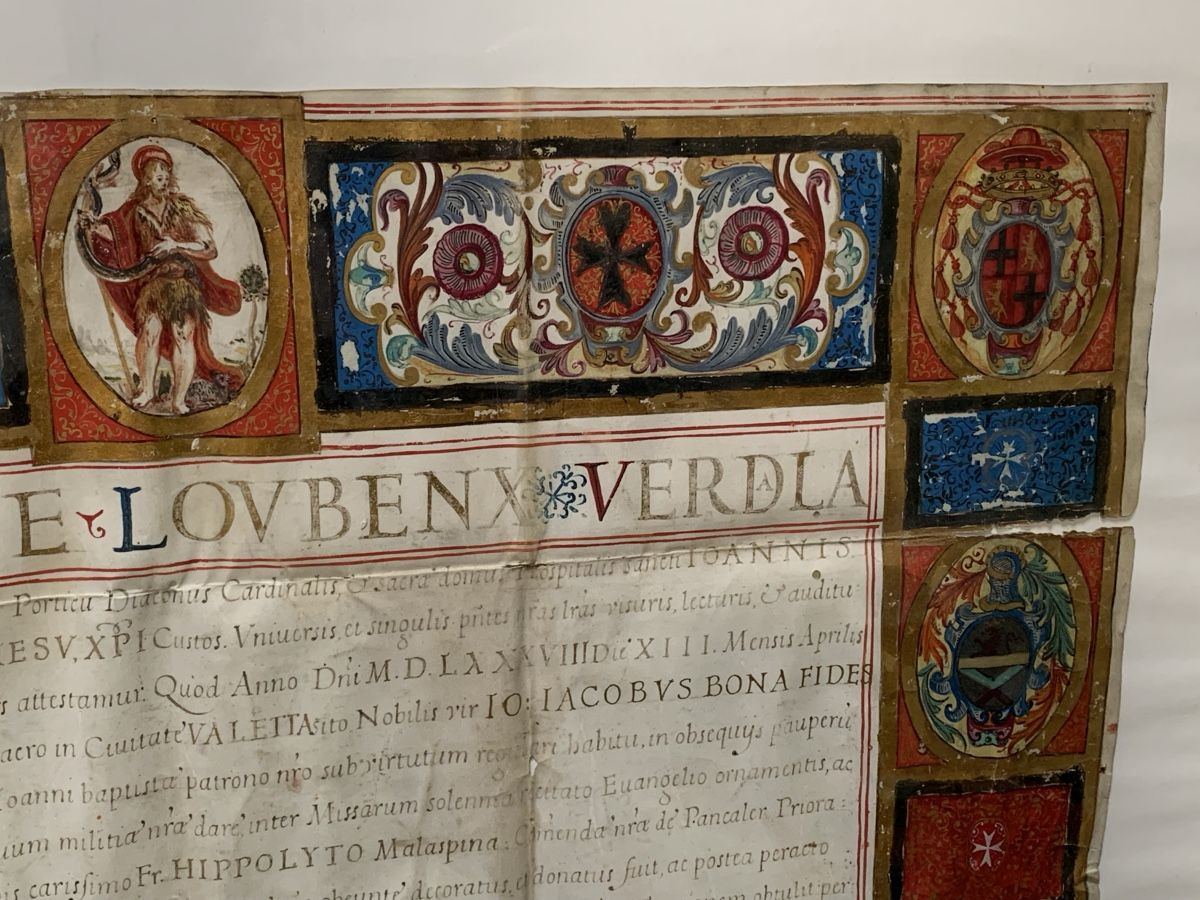 E LOVBENX VERDALA
Porticu Diaconus Cardinalis, & sacrae domus Hospitalis Sancti IOANNIS
IESV, XPI Custos. Vniuersis, et singulis pñtes nras lras visuris, lecturis, & auditu
s attestamur. Quod Anno Dñi M.D.LXXXVIII Die XIII. Mensis Aprilis
acro in Ciuitate VALETTA sito Nobilis vir IO: IACOBVS BONA FIDES
Ioanni baptista patrono nro sub virtutum regulari habitu, in obsequijs pauperũ
ium militiae nrae dare, inter Missarum solemnia Euangelio ornamentis, ac
Fr. HIPPOLYTO Malaspina. nrae de Pancaler Priora:
is carissimo decoratus, et donatus fuit, ac postea peracto
obtulit per